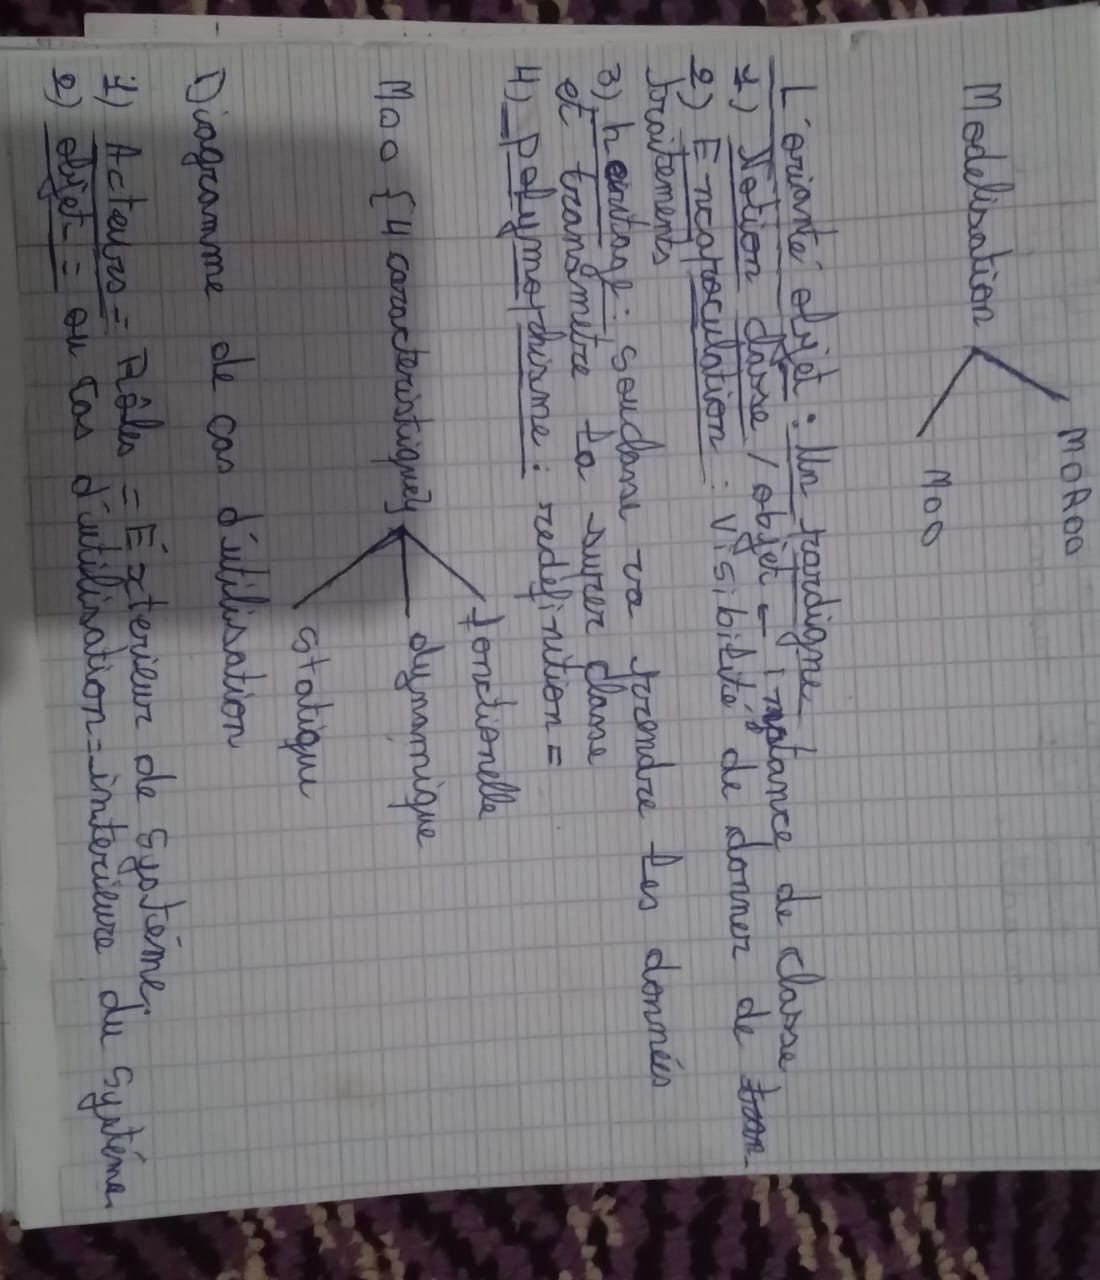 MOAOO
Modelisation
MOO
L'orianté objet : Un pardigne
1) Notion classe / objet ← instance de classe
2) Encapraculation : visibilité de donner de tran-
traitements
3) héritage : souclasse va prendre les données
et transmetre la surer classe
4) polymorphisme : redéfinition =
fonctionelle
Moo {4 caracteristique} dynamique
statique
Diagramme de cas d'utilisation
1) Acteurs = Rôles = Éxterieur de système.
2) objet = ou Cas d'utilisation = interieure du système.